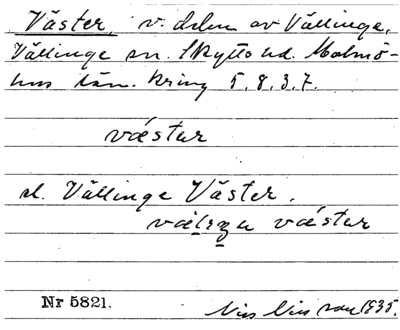 Väster, v. delen av Vällinge,
Vällinge sn. Skytts hd. Malmö-
hus län. kring 5.8.3.7.
væstər
el. Vällinge Väster.
væstər
Nr 5821.
Nils Nilsson 1935.